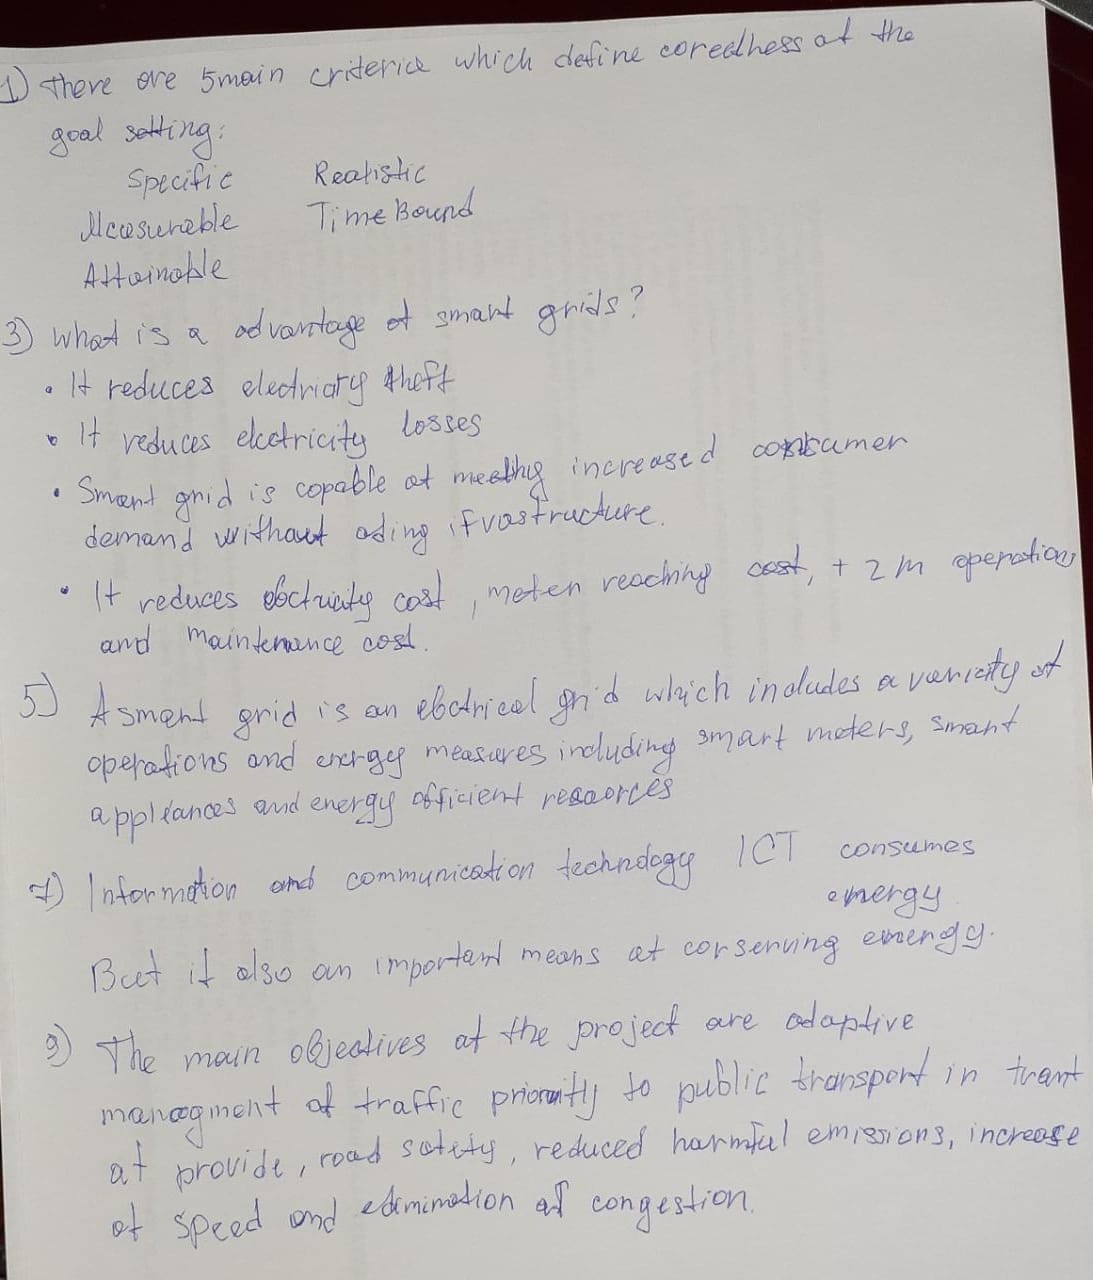 1) there are 5 main criteria which define coredhess of the
goal setting:
Specific Realistic
Measurable Time Bound
Attainable
3) what is a advantage of smart grids?
• It reduces electricity theft
• It reduces electricity losses
• Smart grid is capable of meeting increased consumer
demand without ading ifvastructure.
• It reduces electricity cost, meter reaching cost, + 2 m operations
and maintenance cost.
5) A smart grid is an electrical grid which includes a varieity of
operations and energy measures including smart meters, smart
appliances and energy efficient resources
7) Information and communication technology ICT consumes
energy
But it also an important means of conserving energy.
9) The main objectives of the project are adaptive
managment of traffic priority to public transport in trant
of provide, road safety, reduced harmful emissions, increase
of speed and elimination of congestion.